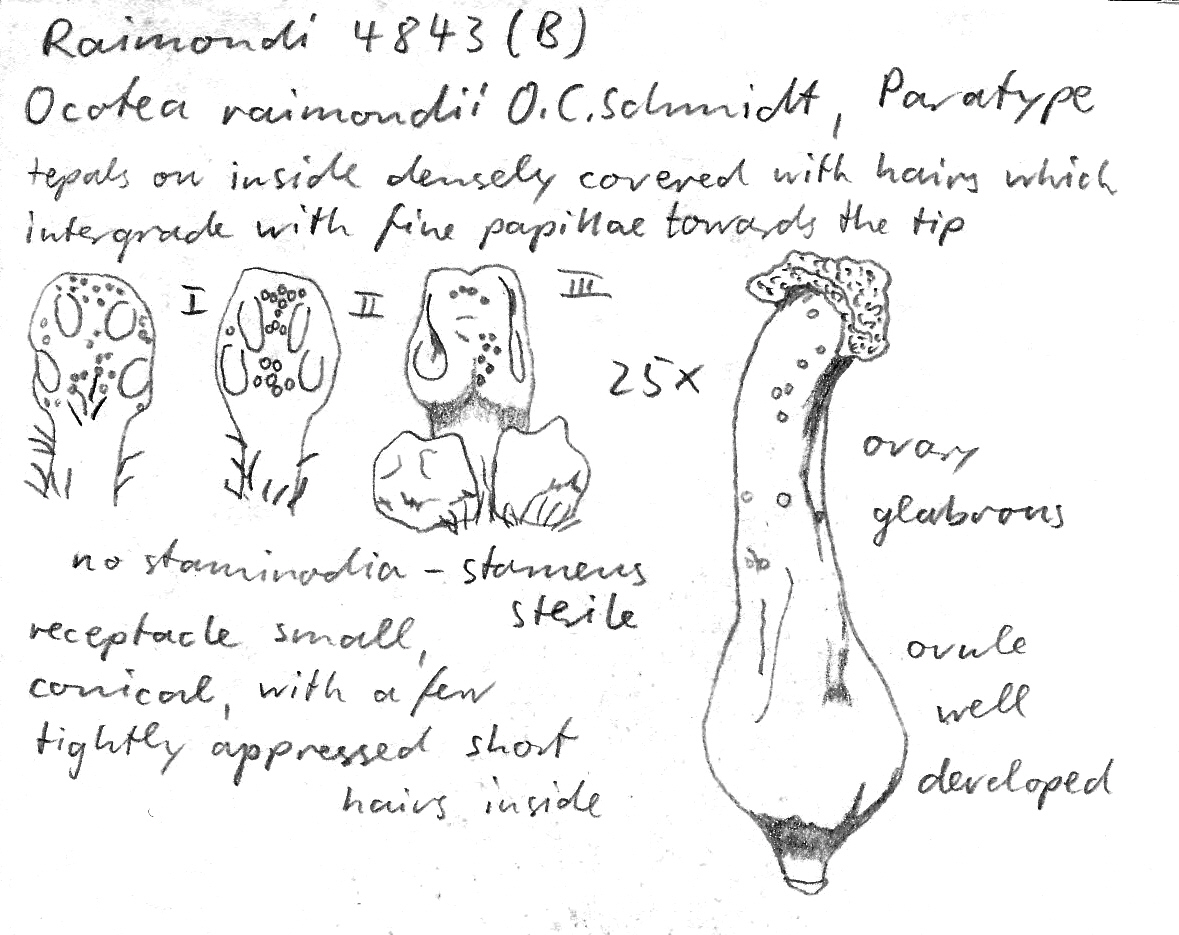 Raimondi 4843 (B)
Ocotea raimondii O.C.Schmidt, Paratype
tepals on inside densely covered with hairs which
intergrade with fine papillae towards the tip
I
II
III
25x
ovary
glabrous
no staminodia – stamens
sterile
receptacle small,
conical, with a few
tightly appressed short
hairs inside
ovule
well
developed